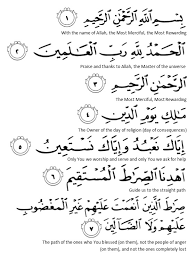 بِسْمِ اللَّهِ الرَّحْمَٰنِ الرَّحِيمِ ١
With the name of Allah, the Most Merciful, the Most Rewarding
الْحَمْدُ لِلَّهِ رَبِّ الْعَالَمِينَ ٢
Praise and thanks to Allah, the Master of the universe
الرَّحْمَٰنِ الرَّحِيمِ ٣
The Most Merciful, Most Rewarding
مَالِكِ يَوْمِ الدِّينِ ٤
The Owner of the day of religion (day of consequences)
إِيَّاكَ نَعْبُدُ وَإِيَّاكَ نَسْتَعِينُ ٥
Only You we worship and serve and only You we ask for help
اهْدِنَا الصِّرَاطَ الْمُسْتَقِيمَ ٦
Guide us to the straight path
صِرَاطَ الَّذِينَ أَنْعَمْتَ عَلَيْهِمْ غَيْرِ الْمَغْضُوبِ
عَلَيْهِمْ وَلَا الضَّالِّينَ ٧
The path of the ones who You blessed (on them), not the people of anger
(on them), and not the ones completely lost